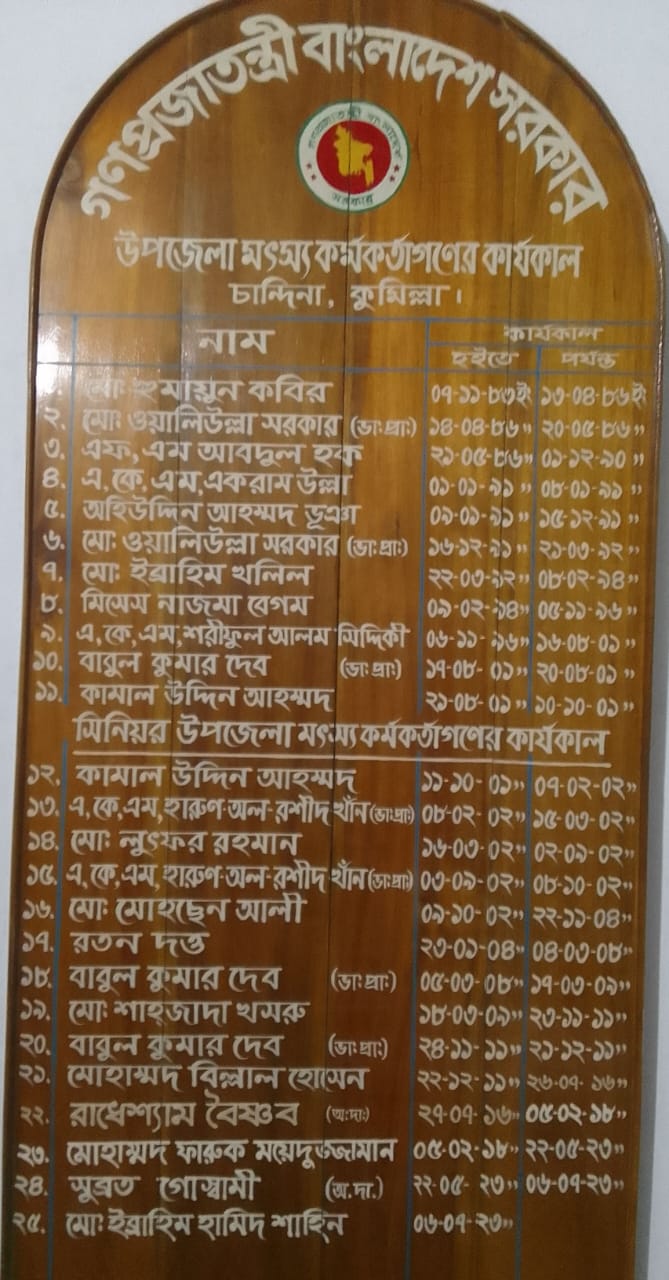 গণপ্রজাতন্ত্রী বাংলাদেশ সরকার
গণপ্রজাতন্ত্রী বাংলাদেশ
সরকার
উপজেলা মৎস্য কর্মকর্তাগণের কার্যকাল
চান্দিনা, কুমিল্লা।
নাম কার্যকাল
হইতে পর্যন্ত
মোঃ হুমায়ুন কবির ০৭-১১-৮৩ইং ১৩-০৪-৮৬ইং
২. মোঃ ওয়ালিউল্লা সরকার (ভাঃপ্রাঃ) ১৪-০৪-৮৬" ২০-০৫-৮৬"
৩. এফ,এম আবদুল হক ২১-০৫-৮৬" ৩১-১২-৯০"
৪. এ,কে,এম,একরাম উল্লা ০১-০১-৯১" ০৮-০১-৯১"
৫. অহিউদ্দিন আহম্মদ ভূঞা ০৯-০১-৯১" ১৫-১২-৯১"
৬. মোঃ ওয়ালিউল্লা সরকার (ভাঃপ্রাঃ) ১৬-১২-৯১" ২১-০৩-৯২"
৭. মোঃ ইব্রাহিম খলিল ২২-০৩-৯২" ০৮-০২-৯৪"
৮. মিসেস নাজমা বেগম ০৯-০২-৯৪" ০৫-১১-৯৬"
৯. এ,কে,এম,শরীফুল আলম সিদ্দিকী ০৬-১১-৯৬" ১৬-০৮-০১"
১০. বাবুল কুমার দেব (ভাঃপ্রাঃ) ১৭-০৮-০১" ২০-০৮-০১"
১১. কামাল উদ্দিন আহম্মদ ২১-০৮-০১" ১০-১০-০১"
সিনিয়র উপজেলা মৎস্য কর্মকর্তাগণের কার্যকাল
১২. কামাল উদ্দিন আহম্মদ ১১-১০-০১" ০৭-০২-০২"
১৩. এ,কে,এম,হারুণ-অল-রশীদ খাঁন(ভাঃপ্রাঃ) ০৮-০২-০২" ১৫-০৩-০২"
১৪. মোঃ লুৎফর রহমান ১৬-০৩-০২" ০২-০৯-০২"
১৫. এ,কে,এম,হারুণ-অল-রশীদ খাঁন(ভাঃপ্রাঃ) ০৩-০৯-০২" ০৮-১০-০২"
১৬. মোঃ মোহছেন আলী ০৯-১০-০২" ২২-১১-০৪"
১৭. রতন দত্ত ২৩-০১-০৪" ০৪-০৩-০৮"
১৮. বাবুল কুমার দেব (ভাঃপ্রাঃ) ০৫-০৩-০৮" ১৭-০৩-০৯"
১৯. মোঃ শাহজাদা খসরু ১৮-০৩-০৯" ২৩-১১-১১"
২০. বাবুল কুমার দেব (ভাঃপ্রাঃ) ২৪-১১-১১" ২১-১২-১১"
২১. মোহাম্মদ বিল্লাল হোসেন ২২-১২-১১" ২৬-০৭-১৬"
২২. রাধেশ্যাম বৈষ্ণব (অঃদাঃ) ২৭-০৭-১৬" ০৫-০২-১৮"
২৩. মোহাম্মদ ফারুক ময়েদুজ্জামান ০৫-০২-১৮" ২২-০৫-২৩"
২৪. সুব্রত গোস্বামী (অ.দা.) ২২-০৫-২৩" ০৬-০৭-২৩"
২৫. মোঃ ইব্রাহিম হামিদ শাহিন ০৬-০৭-২৩"